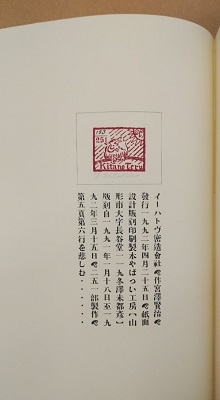 251
Kitano Teru
イーハトヴ密造會社❧作宮澤賢治❧
發行一九九二年四月二十五日❧紙面
設計版刻印刷製本やぱつい工房【山
形市大字長谷堂一一九冬澤未都彦】
版刻自一九九一年一月十八日至一九
九二年三月十五日❧二五一部製作❧
第五頁第六行を悲しむ・・・・・